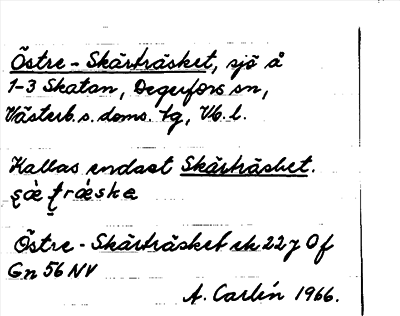 Östre-Skärträsket, sjö å
1-3 Skatan, Degerfors sn,
Västerb. s. doms. tg, Vb. l.
Kallas endast Skärträsket.
Östre-Skärträsket ek 22 J 0 f
Gn 56 NV
A. Carlín 1966.